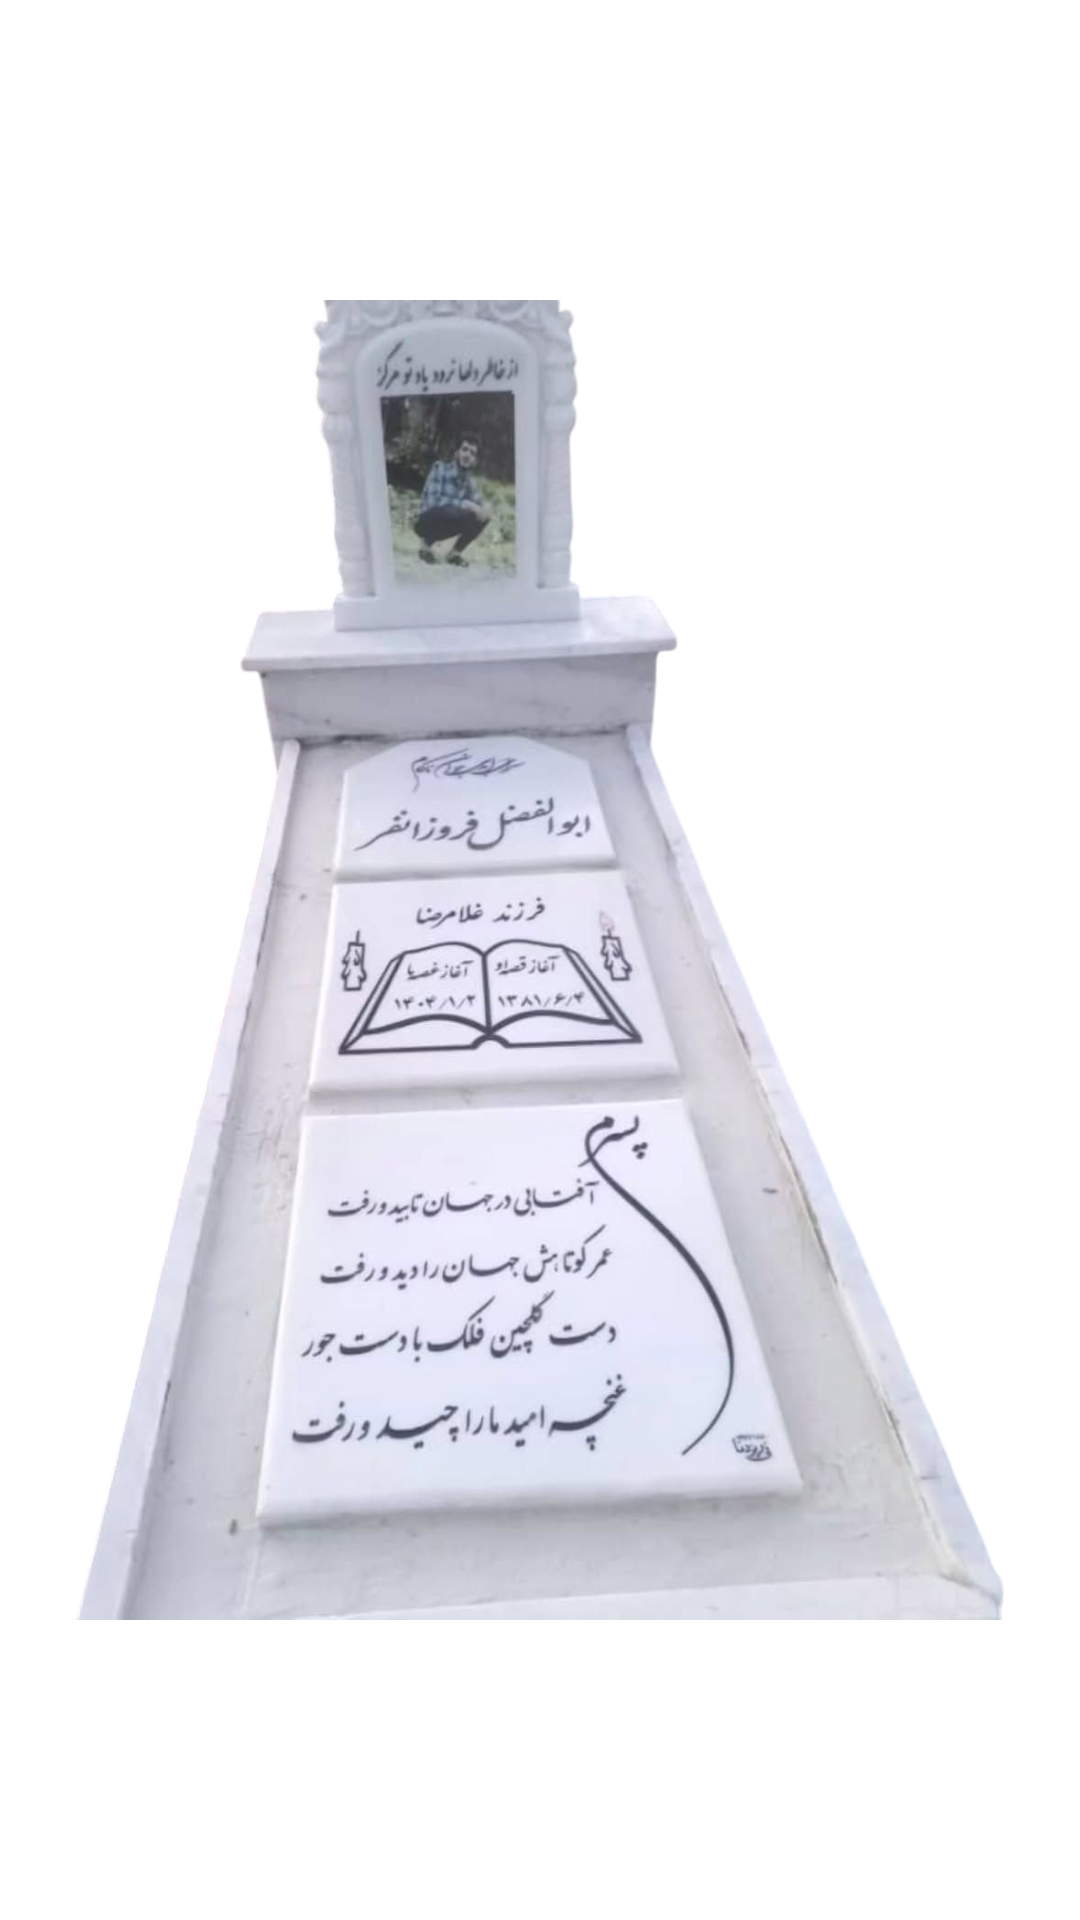 از خاطر دلها نرود یاد تو هرگز
ابوالفضل فروزانفر
فرزند غلامرضا
آغاز قصه او
۱۳۸۱/۶/۴
آغاز غصه ما
۱۴۰۴/۱/۲
پسرم
آفتابی در جهان تابید و رفت
عمر کوتاهش جهان را دید و رفت
دست گلچین فلک با دست جور
غنچه امید ما را چید و رفت